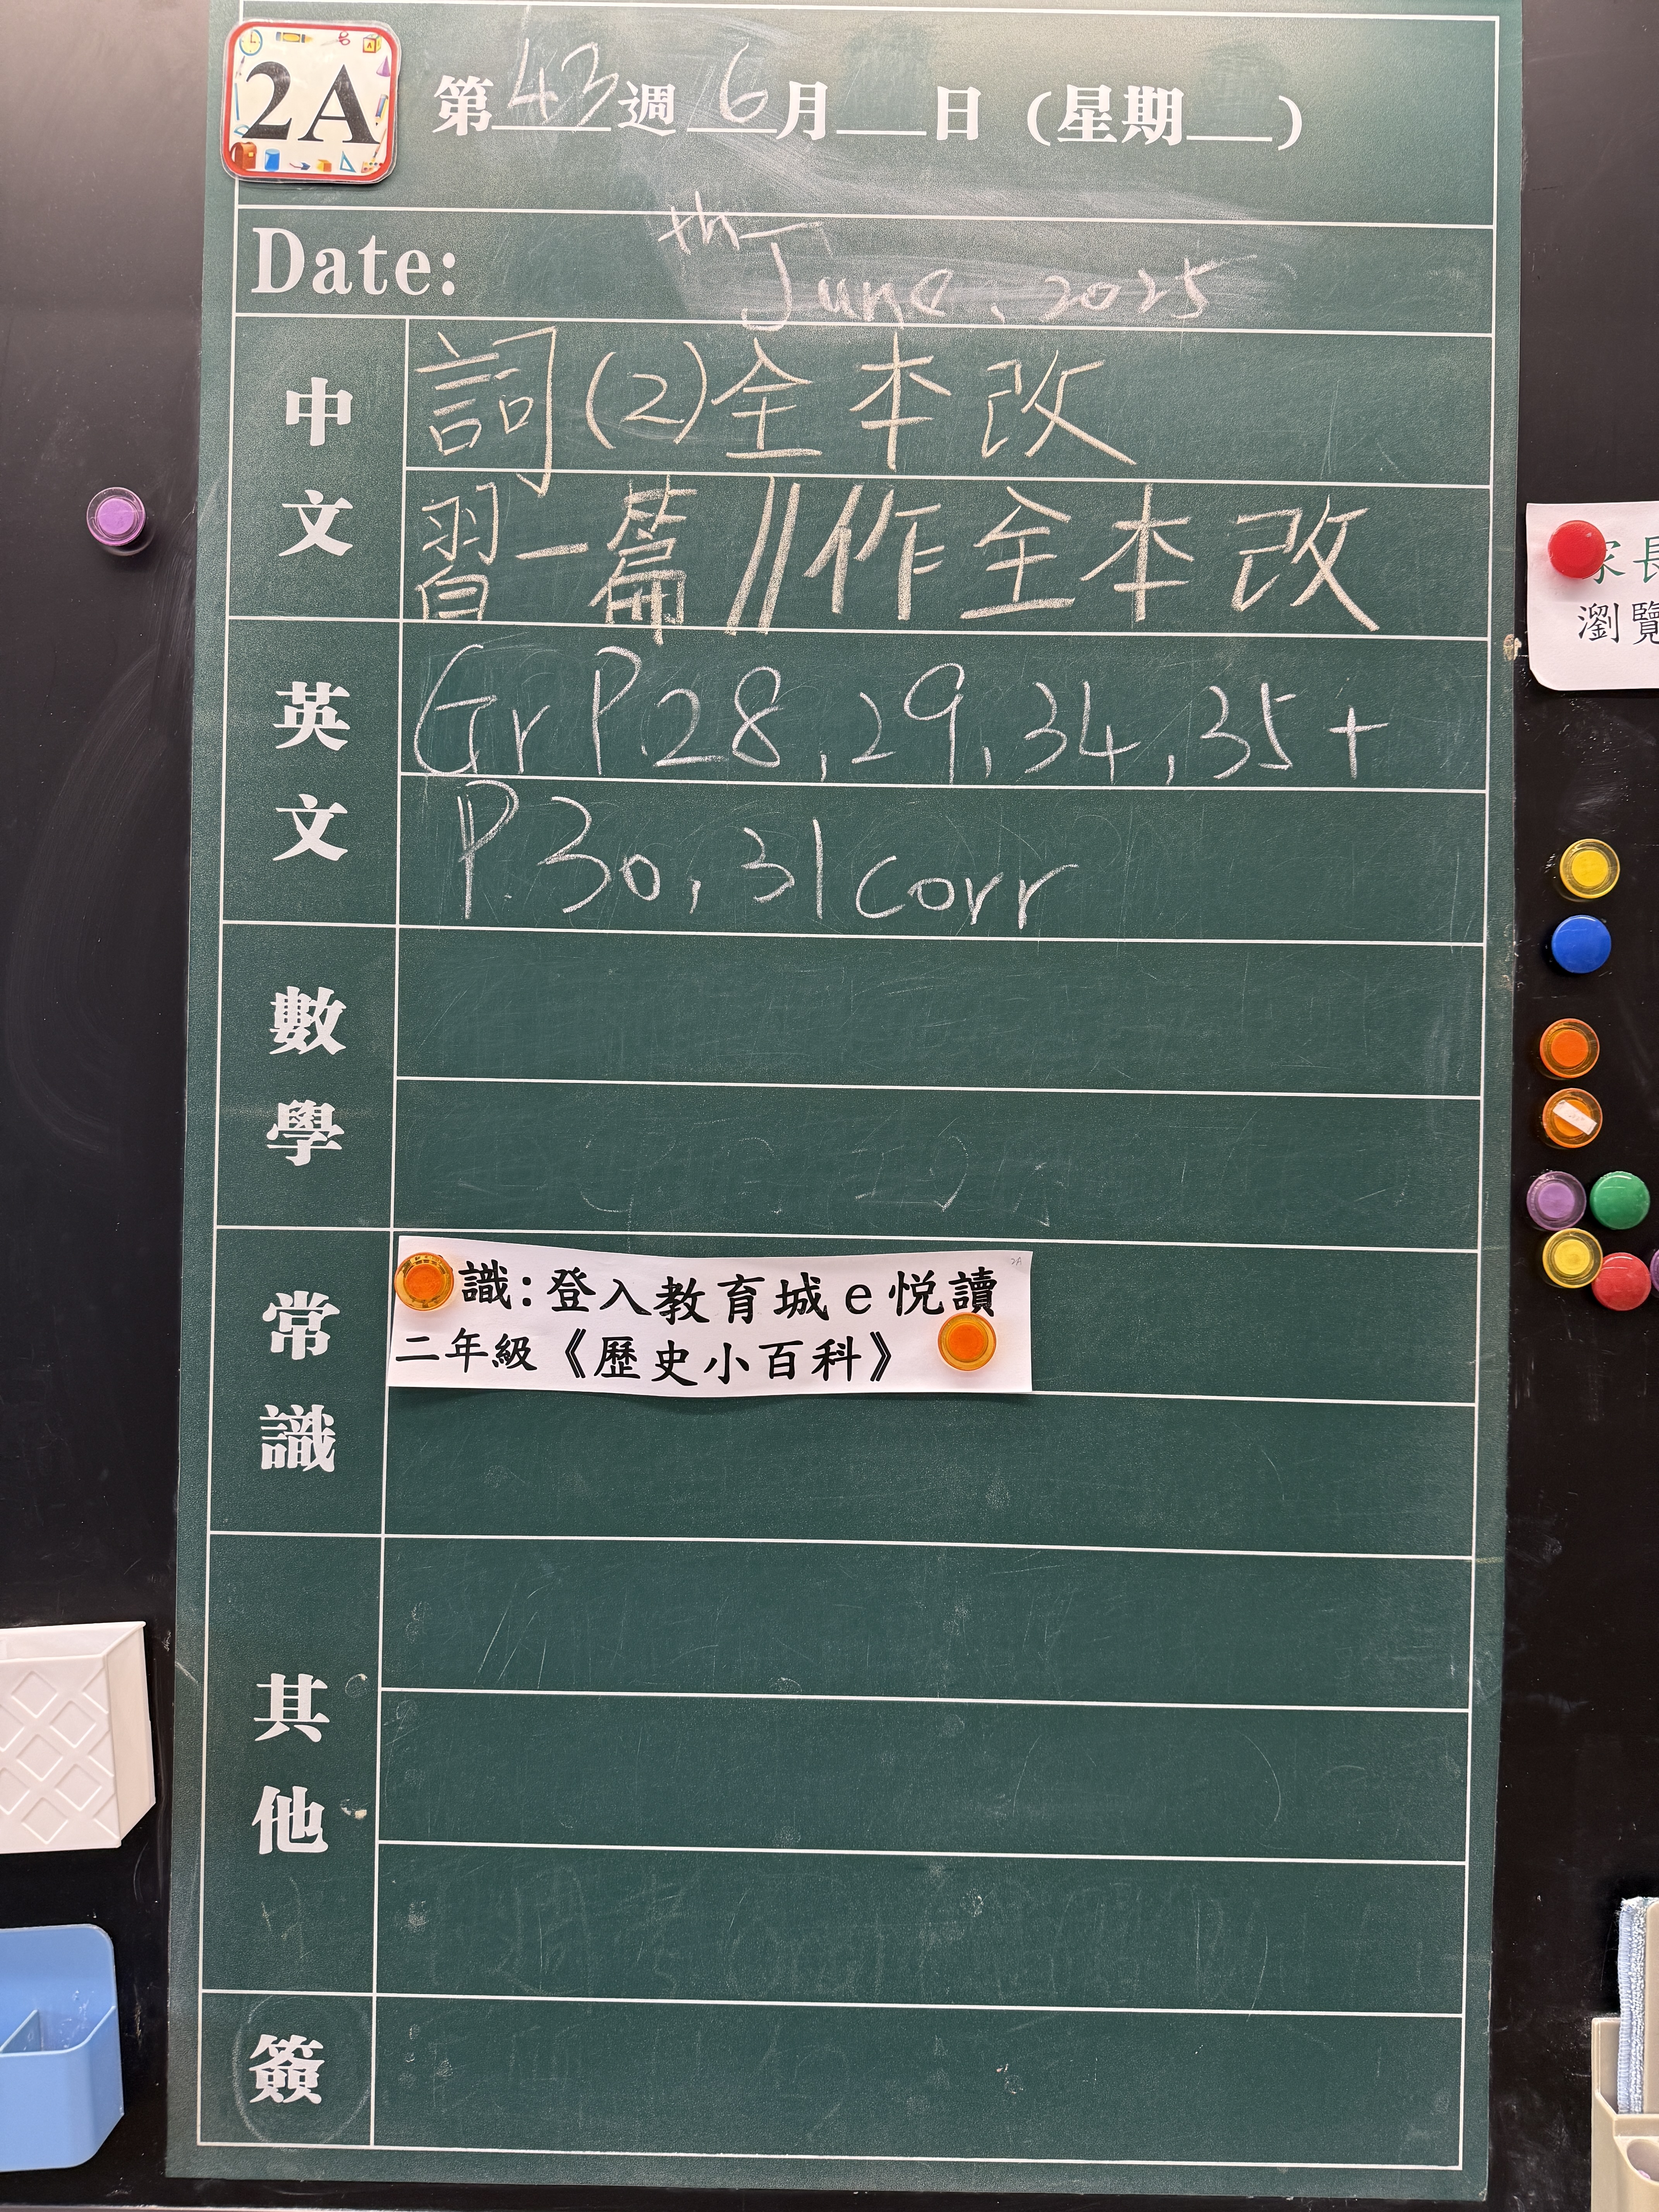 2A
第43週6月__日(星期__)
Date: th June, 2025
中文
詞(2)全本改
習一篇//作全本改
英文
Gr P.28,29,34,35+
P.30,31 corr
數學
常識
識:登入教育城e悦讀
二年級《歷史小百科》
其他
簽
家長
瀏覽